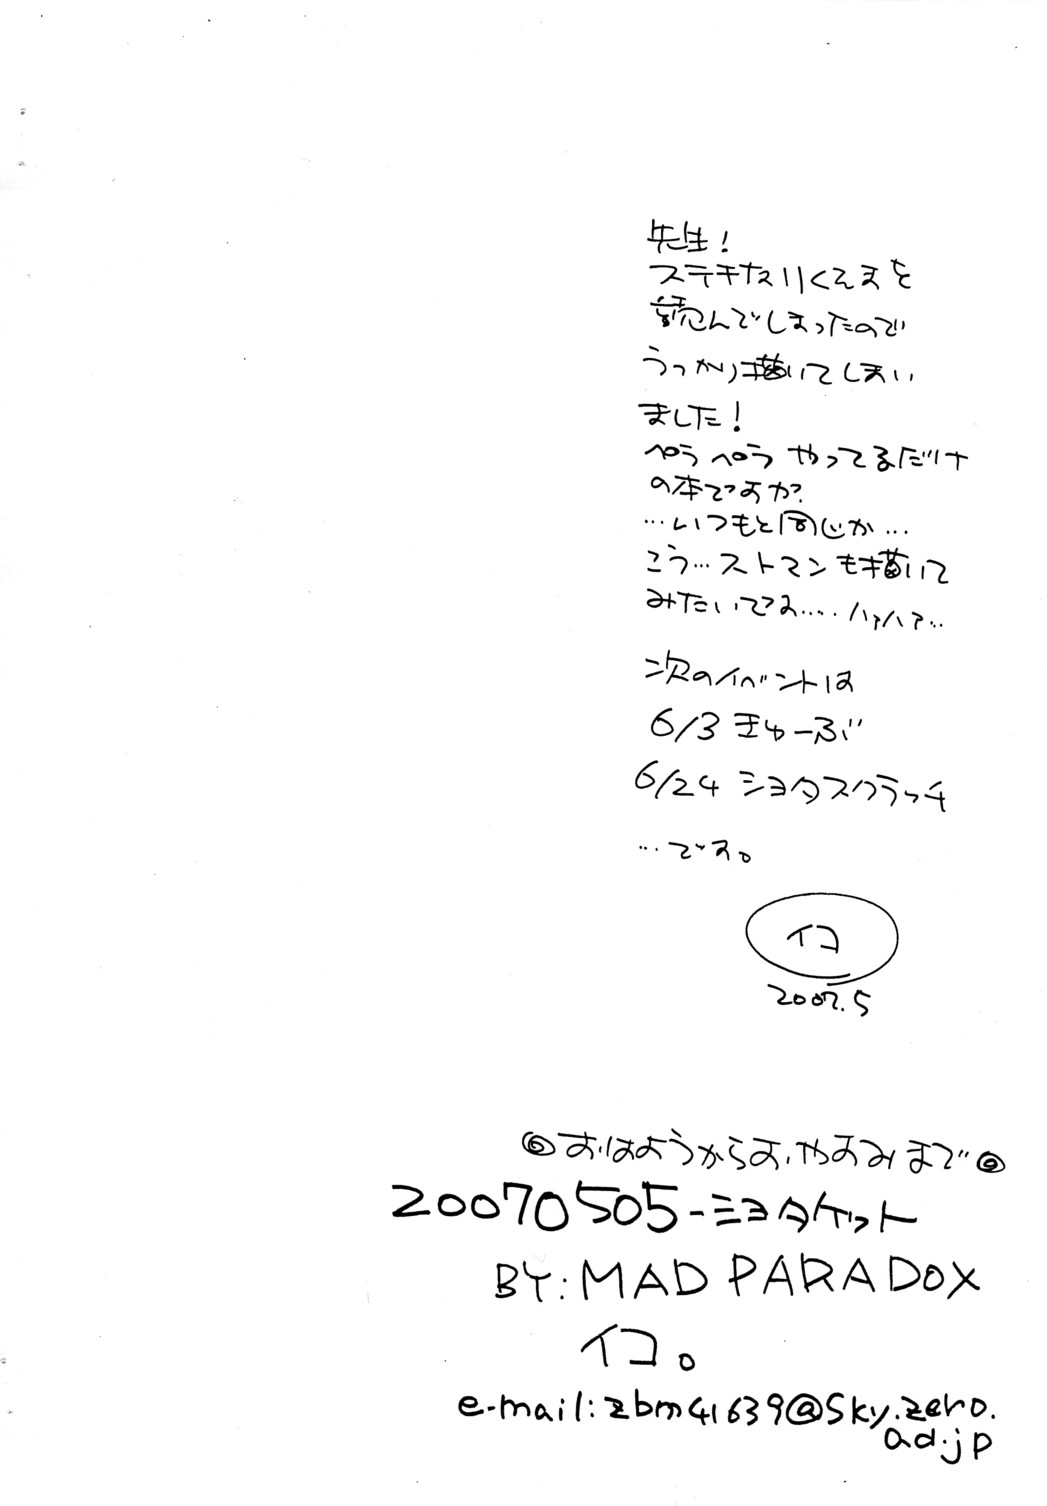 先生!
ステキなりくえすを
読んでしまったので
うっかり描いてしまい
ました!
ペラペラやってるだけ
の本ですが?
…いつもと同じか…
こう…ストマンも描いて
みたいです….. ハァハァ…
次のイベントは
6/3 きゅーぶ
6/24 ショタスクラッチ
…です。
イコ
2007.5
◎おはようからおやすみまで◎
20070505-ショタケット
BY: MAD PARADOX
イコ。
e-mail: zbm41639@sky.zero.
ad.jp